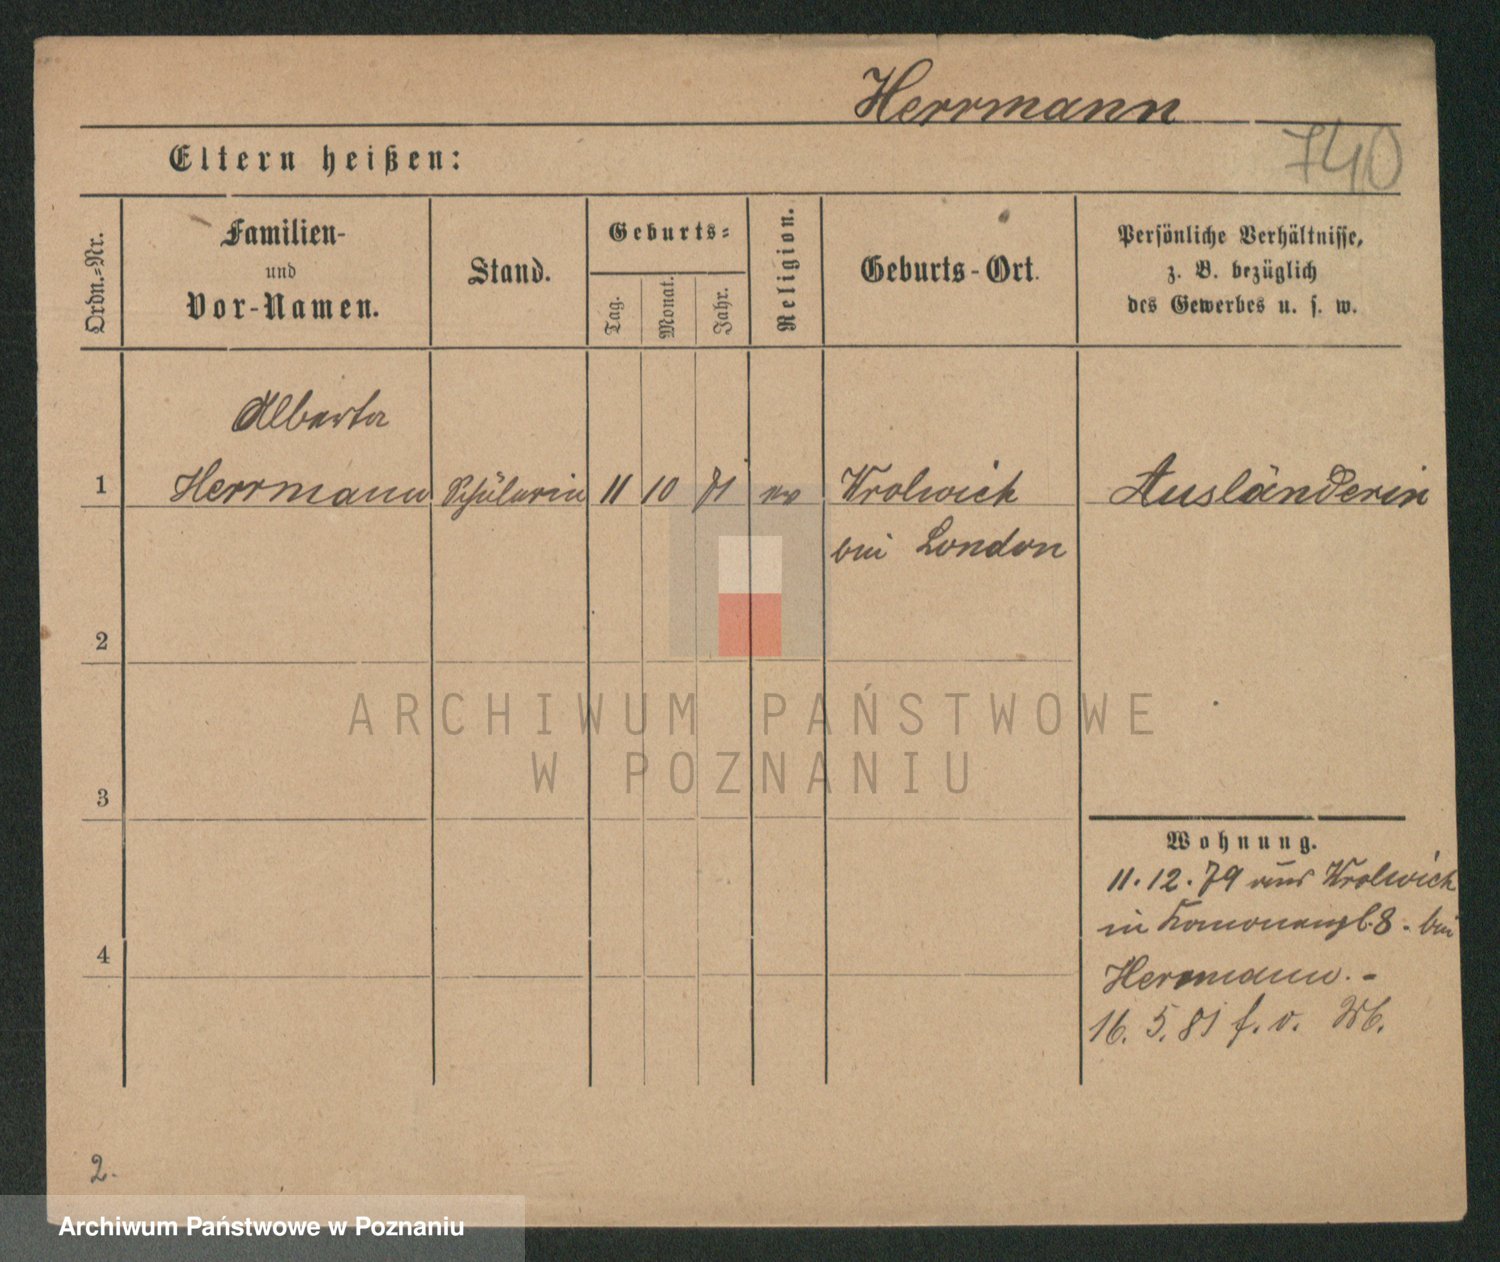 Herrmann
740
Eltern heißen:
Ordn.-Nr.
Familien-
und
Vor-Namen.
Stand.
Geburts-
Tag.
Monat.
Jahr.
Religion.
Geburts-Ort.
Persönliche Verhältnisse,
z. B. bezüglich
des Gewerbes u. s. w.
Alberta
1 Herrmann Schülerin 11 10 71 ev Wolwich Ausländerin
bei London
2
3
4
ARCHIWUM PAŃSTWOWE
W POZNANIU
Wohnung.
11.12.79 aus Wolwich
in 8. bei
Herrmann.-
16. 5. 81 f. v. Wb.
2.
Archiwum Państwowe w Poznaniu